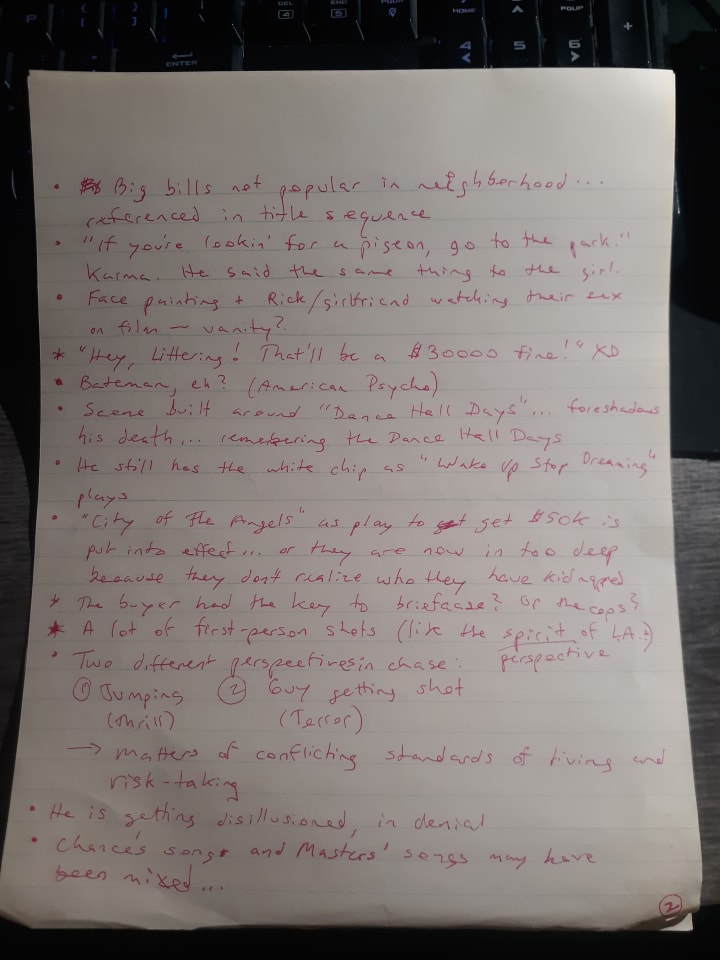 DEL 4 END 5 PGUP HOME 4 5 PGUP 6 +
ENTER
• Big bills not popular in neighborhood...
referenced in title sequence
• "If you're lookin' for a pigeon, go to the park."
Karma. He said the same thing to the girl.
• Face painting + Rick/girlfriend watching their sex
on film — vanity?
* "Hey, Littering! That'll be a $30000 fine!" XD
• Bateman, eh? (American Psycho)
• Scene built around "Dance Hall Days"... foreshadows
his death... remembering the Dance Hall Days
• He still has the white chip as "Wake Up Stop Dreaming"
plays
• "City of the Angels" as play to get $50k is
put into effect... or they are now in too deep
because they don't realize who they have kidnapped
* The buyer had the key to briefcase? Or the cops?
* A lot of first-person shots (like the spirit of L.A.?)
perspective
• Two different perspectives in chase:
① Jumping ② Guy getting shot
(thrill) (Terror)
→ matters of conflicting standards of living and
risk-taking
• He is getting disillusioned, in denial
• Chance's songs and Masters' songs may have
been mixed...
②